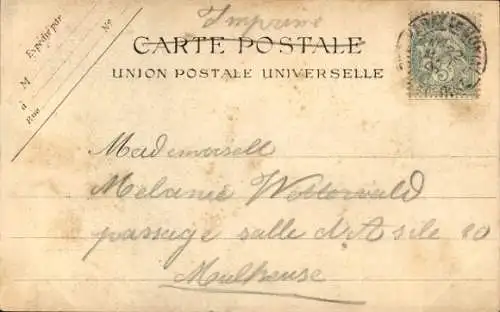 Imprimé
CARTE POSTALE
UNION POSTALE UNIVERSELLE
Expédié par
M
No
à
Rue
5
Mademoisell
Melanie Wetterwald
passage salle d'Asile 20
Mulheuse